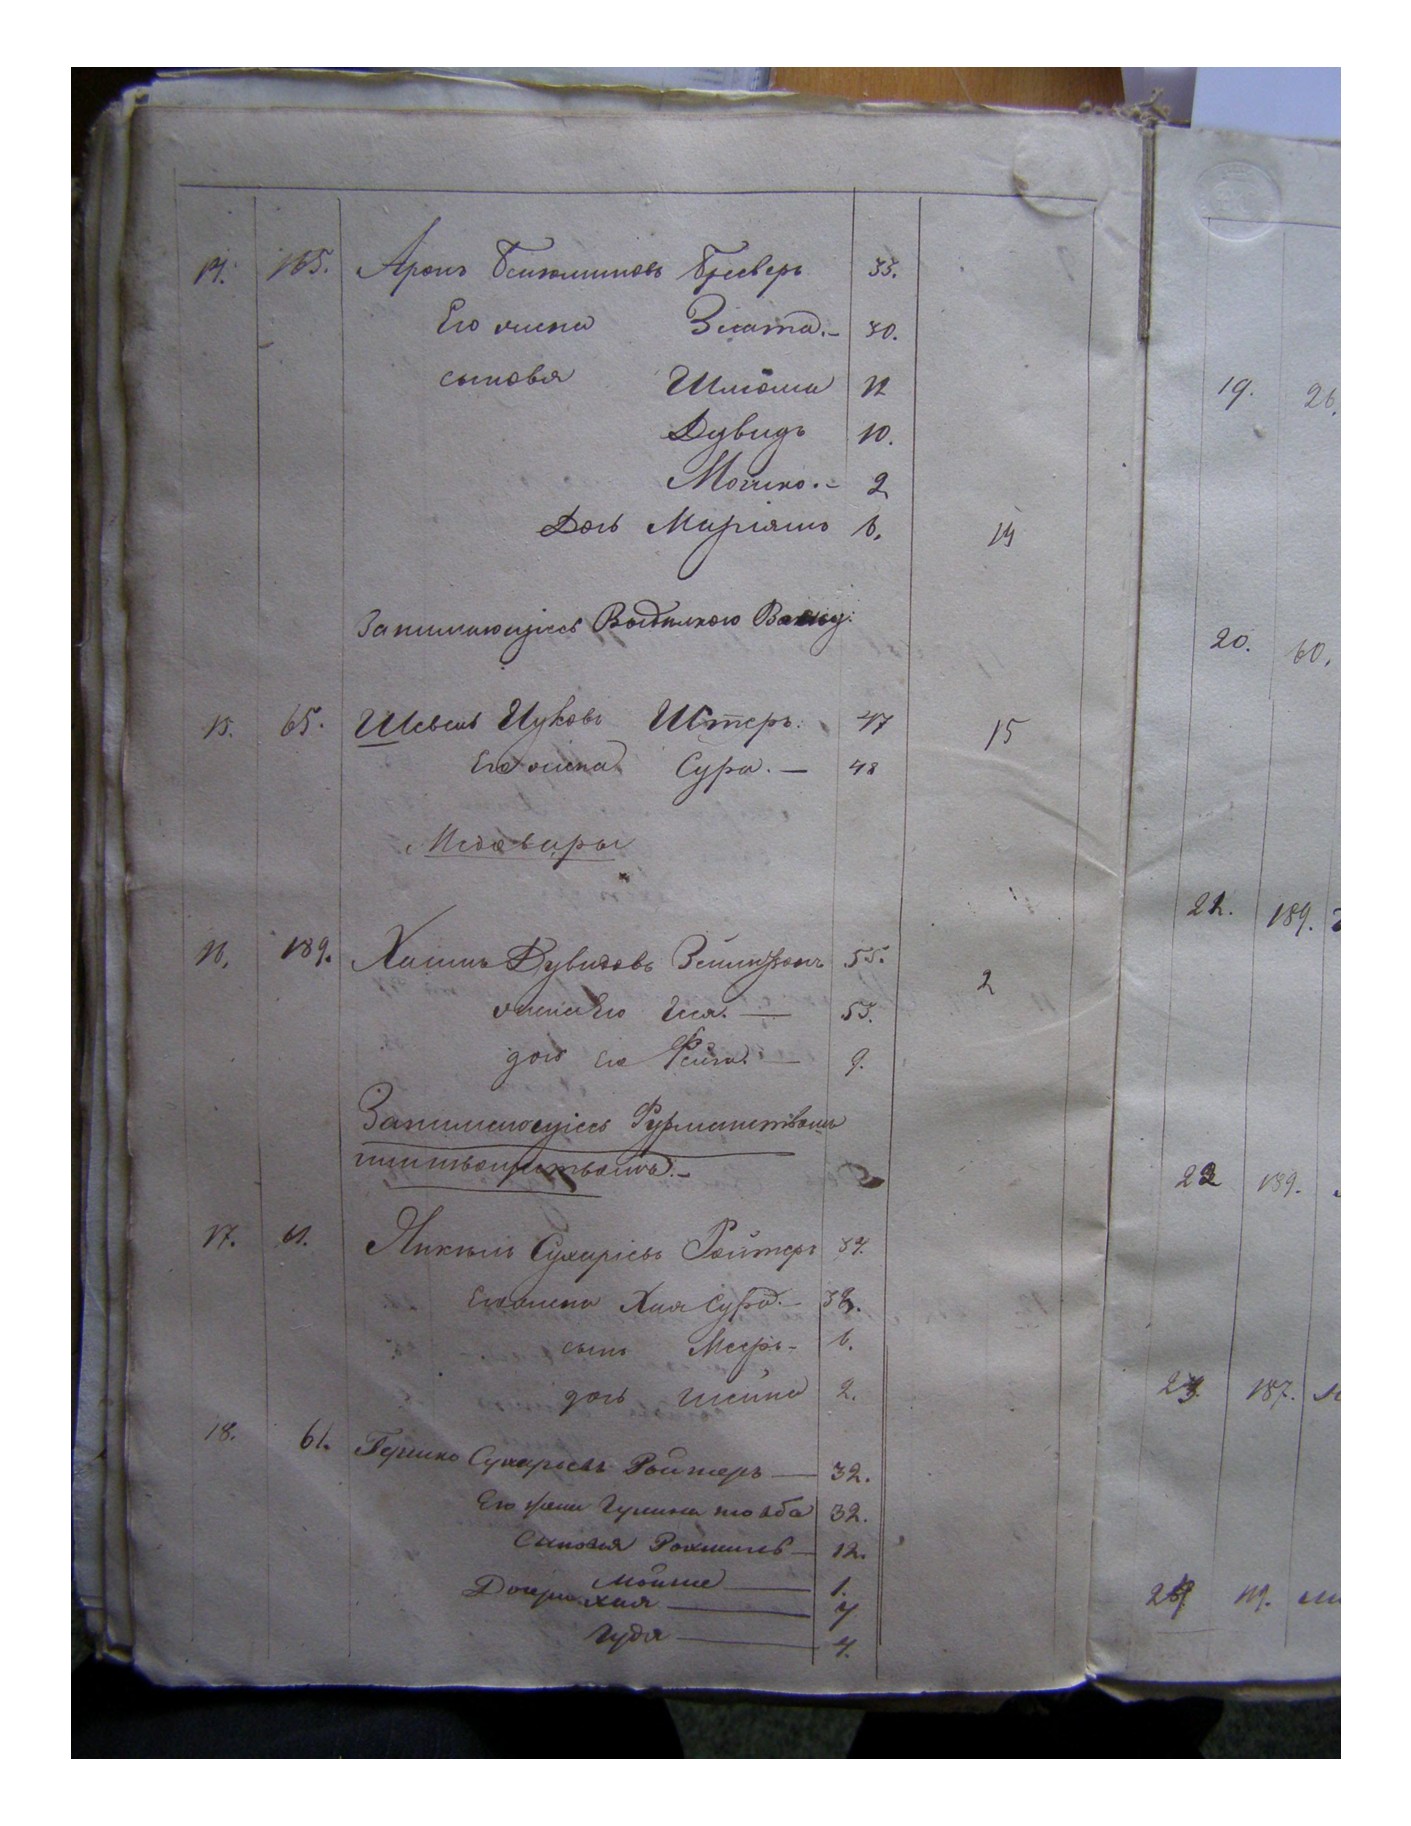 14. 165. Аронъ Бенюминовъ Бресверъ 33.
Его жена Злата. 30.
сыновья Шлёма 12
Дувидъ 10.
Мошко. 2
Дочь Маріямъ 6. 14
Занимающіесь Выдѣлкою
15. 65. Шевель Ицковъ Штеръ. 47 15
Его жена Сура. 48
Медовары
16. 189. Хаимъ Дувидовъ 55. 2
жена Его 55.
дочь Его Фейга. 9.
Занимающіесь Фурманствомъ
17. 61. Янкель Сухаріевъ Ройтеръ 34.
Его жена Хая Сура. 38.
сынъ Мееръ 6.
дочь Шейна 2.
18. 61. Гершко Сухаріевъ Ройтеръ 32.
Его жена 32.
Синовья Рахмиль 12.
Мойше 1.
Дочери Хая 7
Гудя 4.
19. 26.
20. 60.
21. 189.
22 189.
23. 187.
24 111.